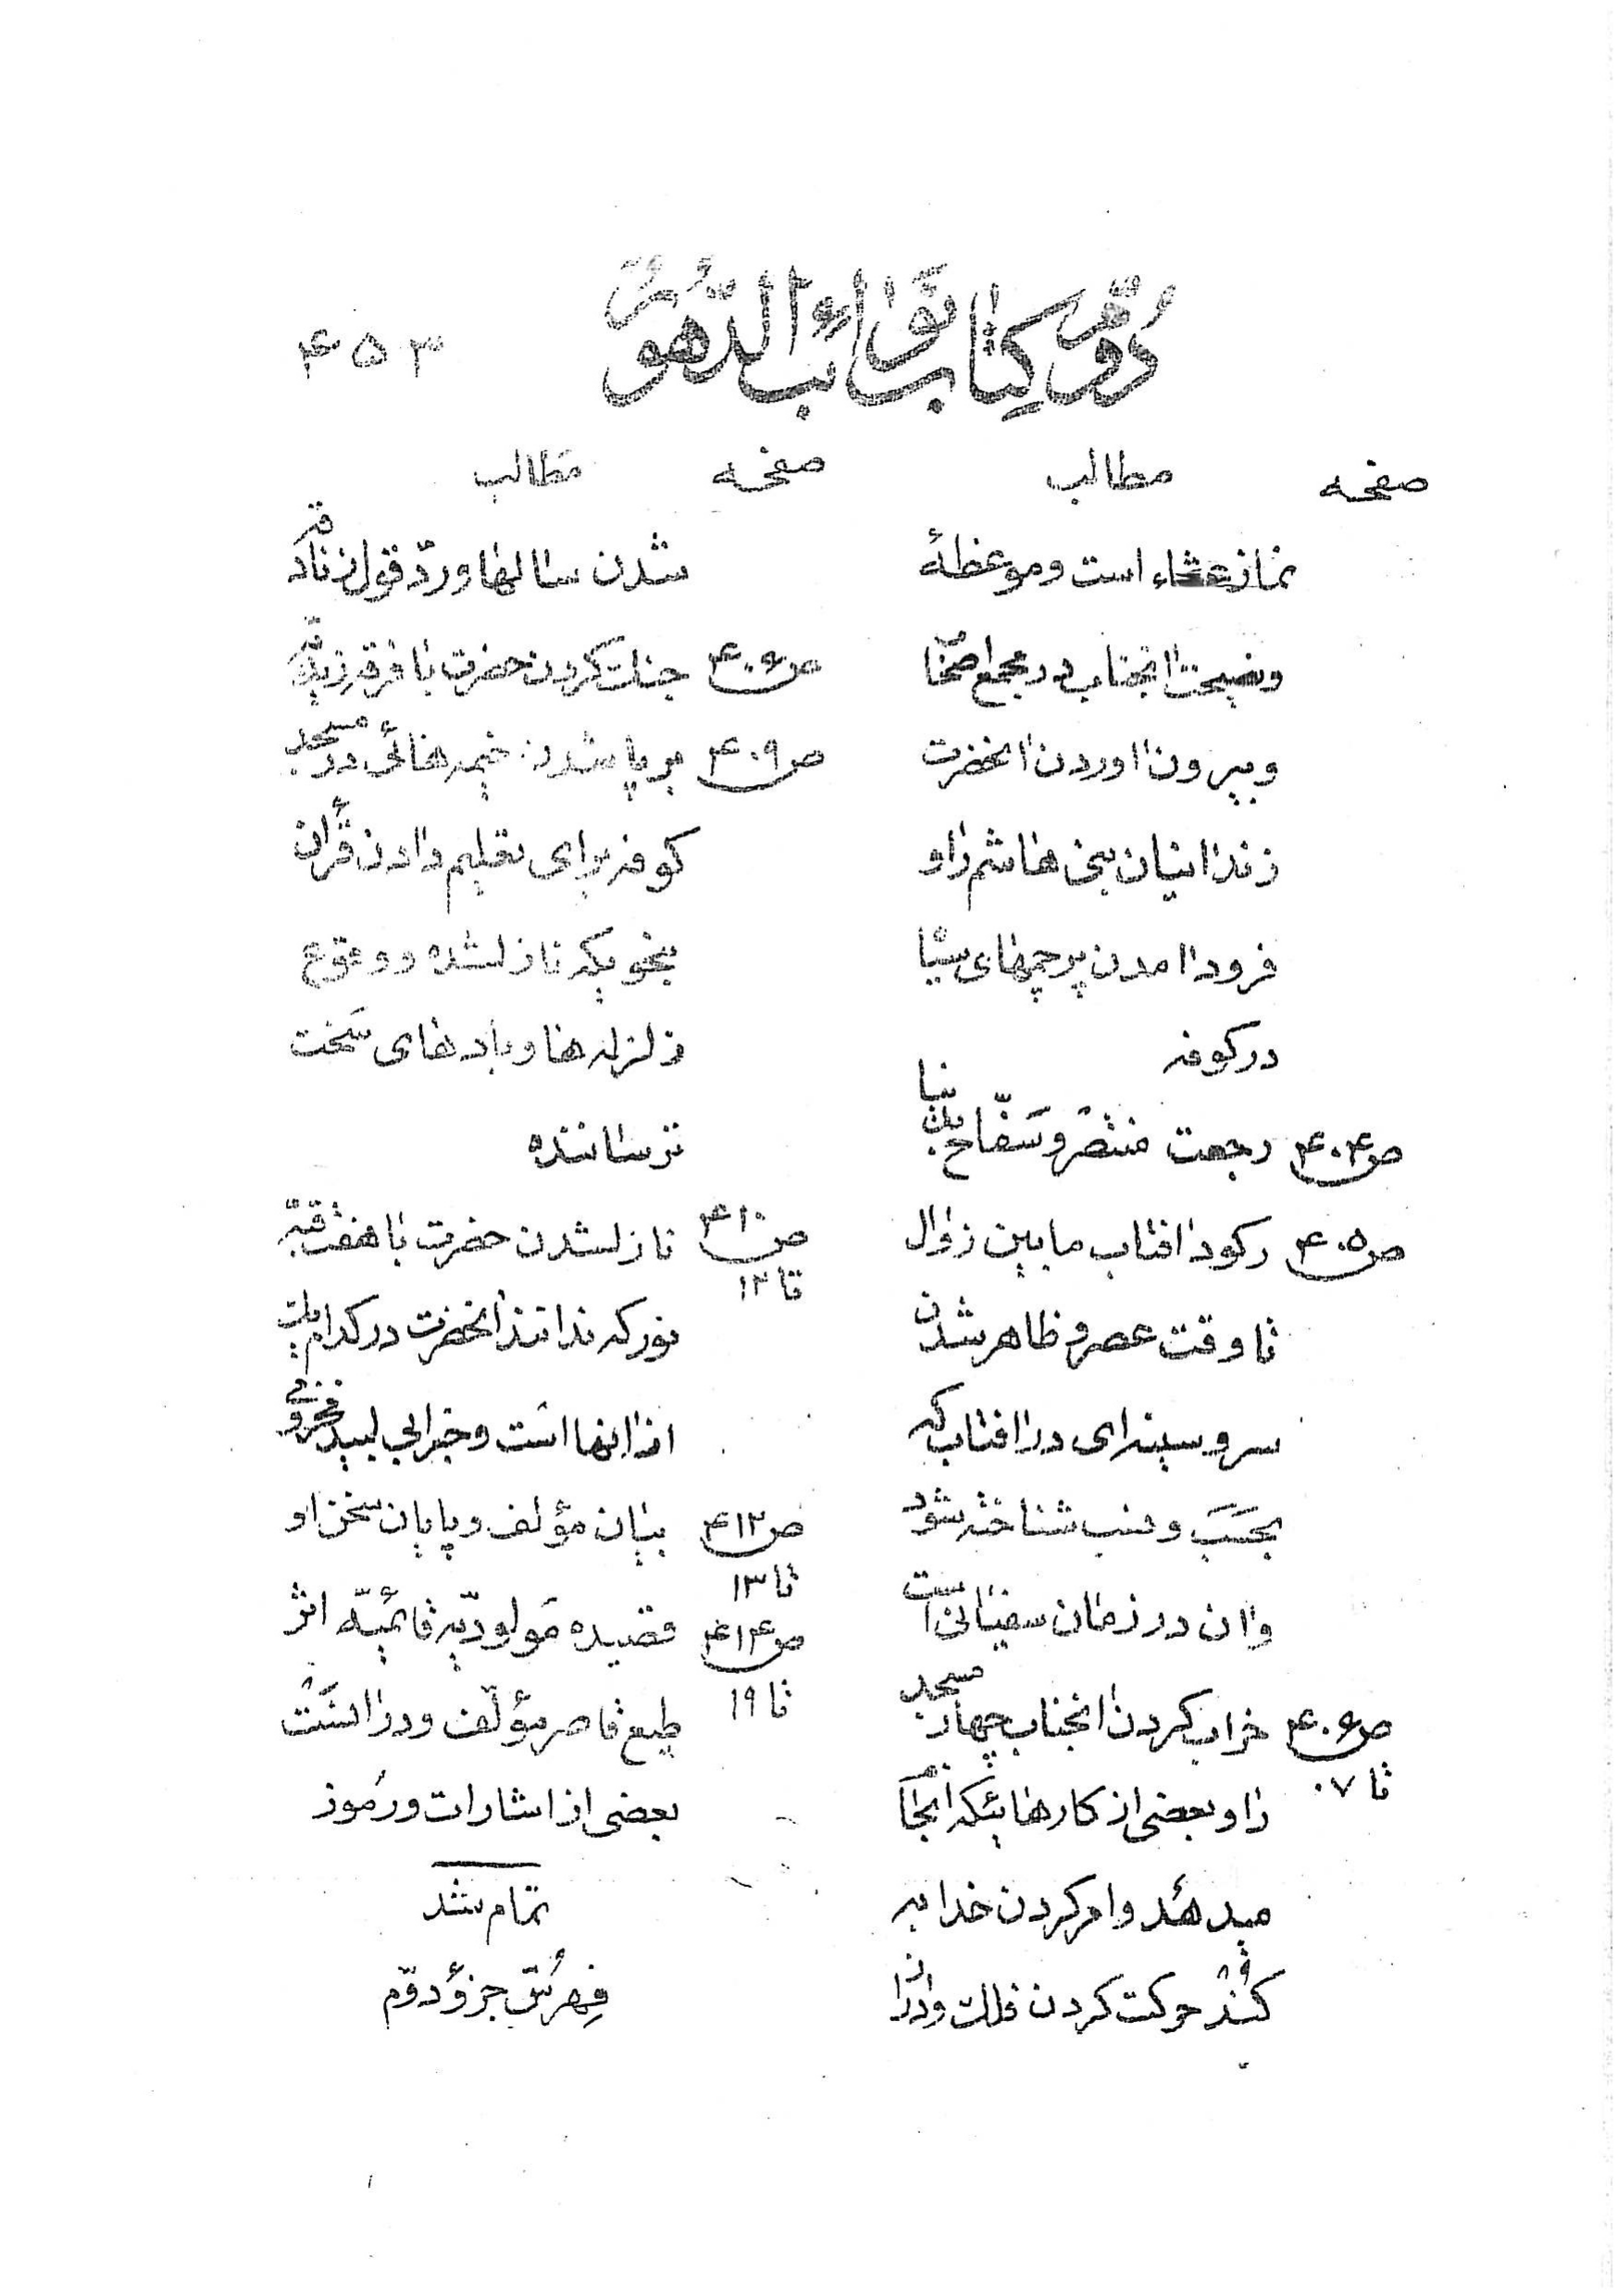 دوم کتاب نوائب الدهور
۴۵۳
صفحه مطالب
نماز عشاء است و موعظهٔ
و نصیحت انجناب در مجمع اصحٰا
و بیرون اوردن انحضرت
زندانیان بنی هاشم را و
فرود امدن پرچمهای سیٰا
در کوفه
ص۴۰۴ رجعت منتصر و سَفّاح بدنیا
ص۴۰۵ رکود افتاب مابین زوال
تا وقت عصر و ظاهر شدن
سر و سینه‌ای در افتاب که
بحَسَب و نسب شناخته شود
و ان در زمان سفیانی است
ص۴۰۶ تا ۰۷ خراب کردن انجناب چهار مسجد
را و بعضی از کارهائیکه انجٰا
میدهد و امر کردن خدا به
کُند حرکت کردن فلک و دراز
صفحه مطالب
شدن سالها و ردّ قول زنادقه
ص۴۰۶ جنك کردن حضرت با فرقه زیدیّه
ص۴۰۹ برپا شدن خیمه هائی در مسجد
کوفه برای تعلیم دادن قرآن
بنحویکه نازلشده و وقوع
زلزله ها و بادهای سَخت
ترساننده
ص۴۱۰ تا ۱۲ نازلشدن حضرت با هفت قبّه
نور که ندانند انحضرت در کدام یك
از انها است و خبر ابی لبید مخزومی
ص۴۱۲ تا ۱۳ بیان مؤلف و پایان سخن او
ص۴۱۴ تا ۱۹ قصیده مَولودیّه قائمیّه اثر
طبع قاصر مؤلّف و در انست
بعضی از اشارات و رُموز
تمام شد
فِهرُست جزؤ دوّم